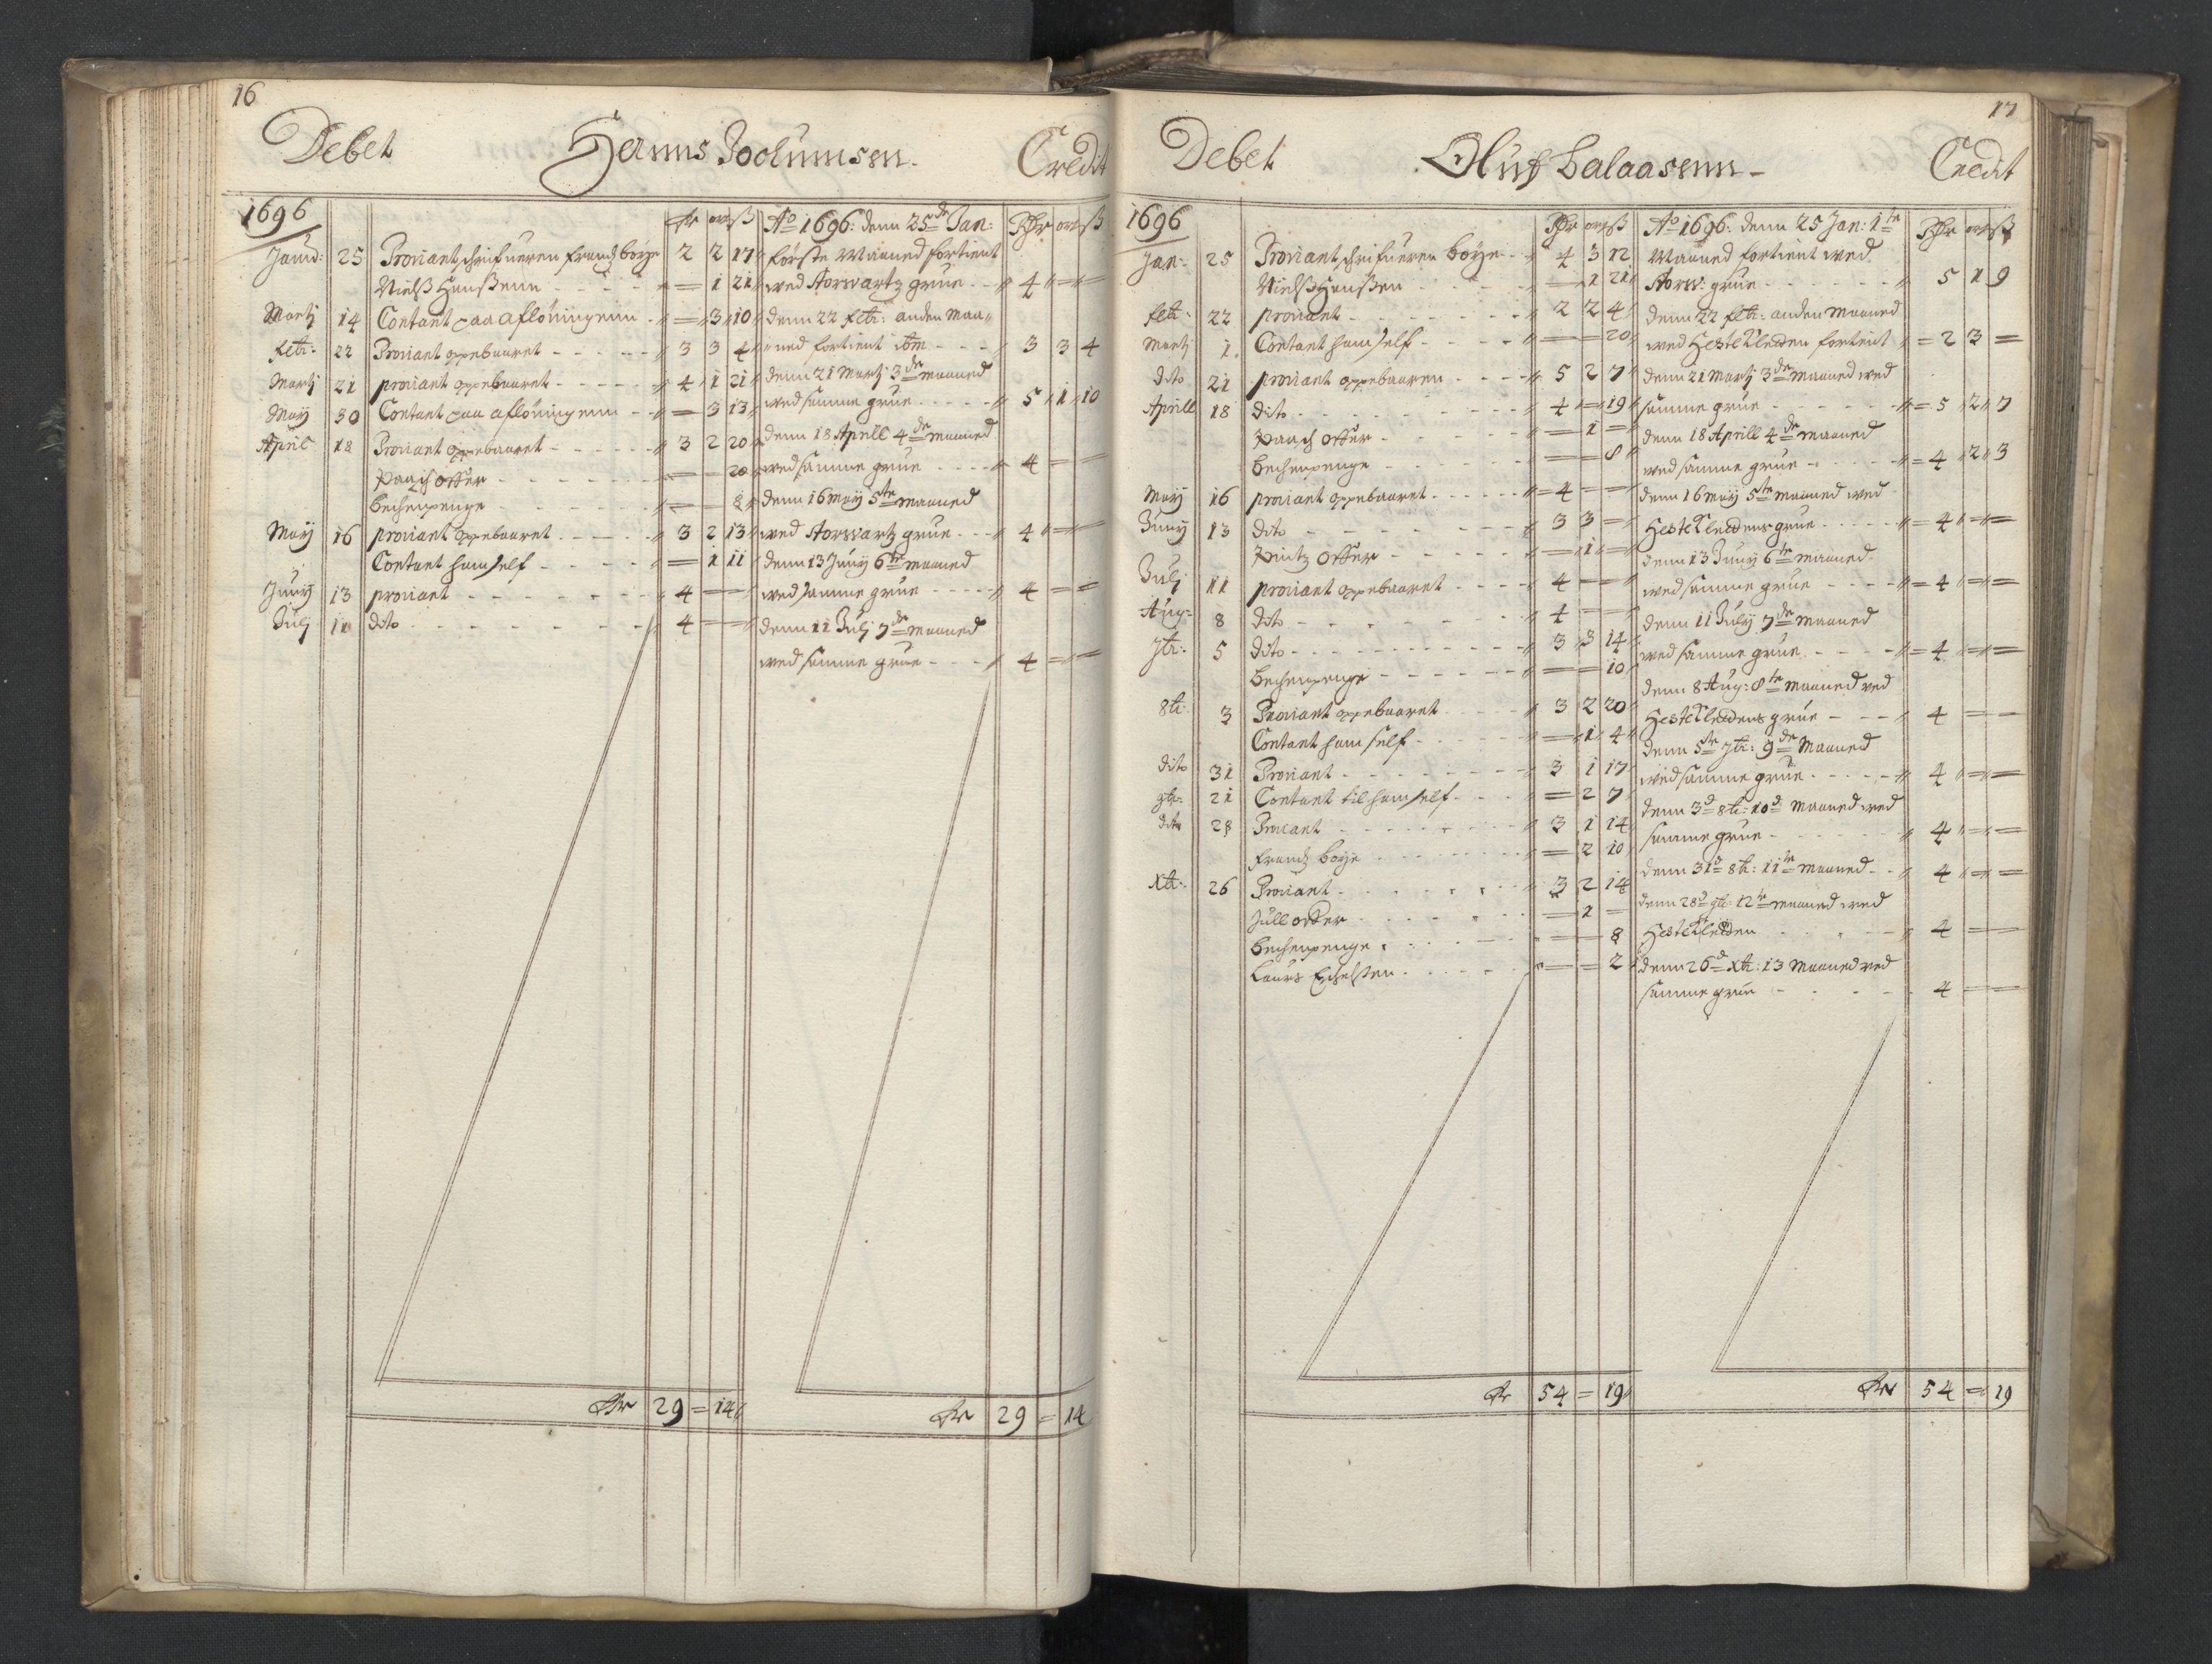 16
Debet Hanns Jochumsen. Credit
1696 Rdr ort ß
Janu: 25 Proviantschrifueren Frandz böye 2 2 17
Nielß Hanßenn = 1 21
Martj 14 Contant paa aflöningenn = 3 10
Feb: 22 Proviant oppebaaret 3 3 4
Martj 21 proviant oppebaaret 4 1 21
May 30 Contant paa aflöningenn = 3 13
April 18 Proviant oppebaaret 3 2 20
Paasch offer = = 20
Bechenpenge = = 8
May 16 proviant oppebaaret 3 2 13
Contant ham self = 1 11
Juny 13 proviant 4 = =
Julj 11 dito 4 = =
Rdr 29 = 14
Ao 1696: denn 25de Jan: Rdr ort ß
förste Maaned fortient
wed Storwartz grue 4 = =
denn 22 Feb: anden Maa-
ned fortient ibm 3 3 4
denn 21 Martj 3de maaned
wed samme grue 5 1 10
denn 18 Aprill 4de maaned
wed samme grue 4 = =
denn 16 May 5te maaned
wed Storwartz grue 4 = =
denn 13 Juny 6te maaned
wed samme grue 4 = =
denn 11 Julj 7de maaned
wed samme grue 4 = =
Rdr 29 = 14
17
Debet Oluf Halaasenn Credit
1696 Rdr ort ß
Jan: 25 Proviantschrifueren Böye 4 3 12
Nielß Hanßen = 1 21
Feb: 22 proviant 2 2 4
Martj 1. Contant ham self = = 20
dito 21 proviant oppebaaren 5 2 7
Aprill 18 dito 4 = 19
Paasch offer = 1 =
Bechenpenge = = 8
May 16 proviant oppebaaret 4 = =
Juny 13 dito 3 3 =
Pintz offer = 1 =
Julj 11 proviant oppebaaret 4 = =
Aug: 8 dito 4 = =
7br: 5 dito 3 3 14
Bechenpenge = = 10
8br: 3 Proviant oppebaaret 3 2 20
Contant ham self = 1 4
dito 31 Proviant 3 1 17
9br: 21 Contant til ham self = 2 7
dito 28 Proviant 3 1 14
Frandz böye = 2 10
Xbr: 26 Proviant 3 2 14
Jull offer = 1 =
Bechenpenge = = 8
= = 2
Rdr 54 = 19
Ao 1696: denn 25 Jan: 1te Rdr ort ß
Maaned fortient wed
Storw: grue 5 1 9
denn 22 Feb: anden Maaned
wed Hestekletten fortient 2 3 =
denn 21 Martj 3de maaned wed
samme grue 5 2 7
denn 18 Aprill 4de maaned
wed samme grue 4 2 3
denn 16 May 5te maaned wed
Hestekledens grue 4 = =
denn 13 Juny 6te maaned
wed samme grue 4 = =
denn 11 July 7de maaned
wed samme grue 4 = =
denn 8 Aug: 8te maaned wed
Hestekledens grue 4 = =
denn 5te 7br: 9de Maaned
wed samme grue 4 = =
denn 3d 8br: 10d Maaned wed
samme grue 4 = =
denn 31d 8br: 11te maaned 4 = =
denn 28d 9br: 12te maaned wed
Hestekleden 4 = =
denn 26d Xbr: 13 Maaned wed
samme grue 4 = =
Rdr 54 = 19